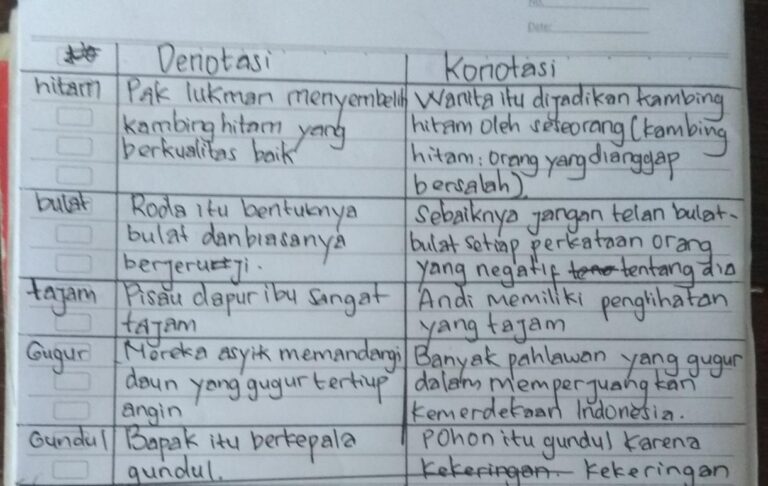 No.
Date:
Denotasi Konotasi
hitam Pak lukman menyembelih Wanita itu dijadikan kambing
kambing hitam yang hitam oleh seseorang (kambing
berkualitas baik hitam : orang yang dianggap
bersalah).
bulat Roda itu bentuknya Sebaiknya jangan telan bulat-
bulat dan biasanya bulat setiap perkataan orang
berjeruji. yang negatif tentang dia
tajam Pisau dapur ibu sangat Andi memiliki penglihatan
tajam yang tajam
Gugur Mereka asyik memandangi Banyak pahlawan yang gugur
daun yang gugur tertiup dalam memperjuangkan
angin kemerdekaan Indonesia.
Gundul Bapak itu berkepala Pohon itu gundul karena
gundul. kekeringan kekeringan